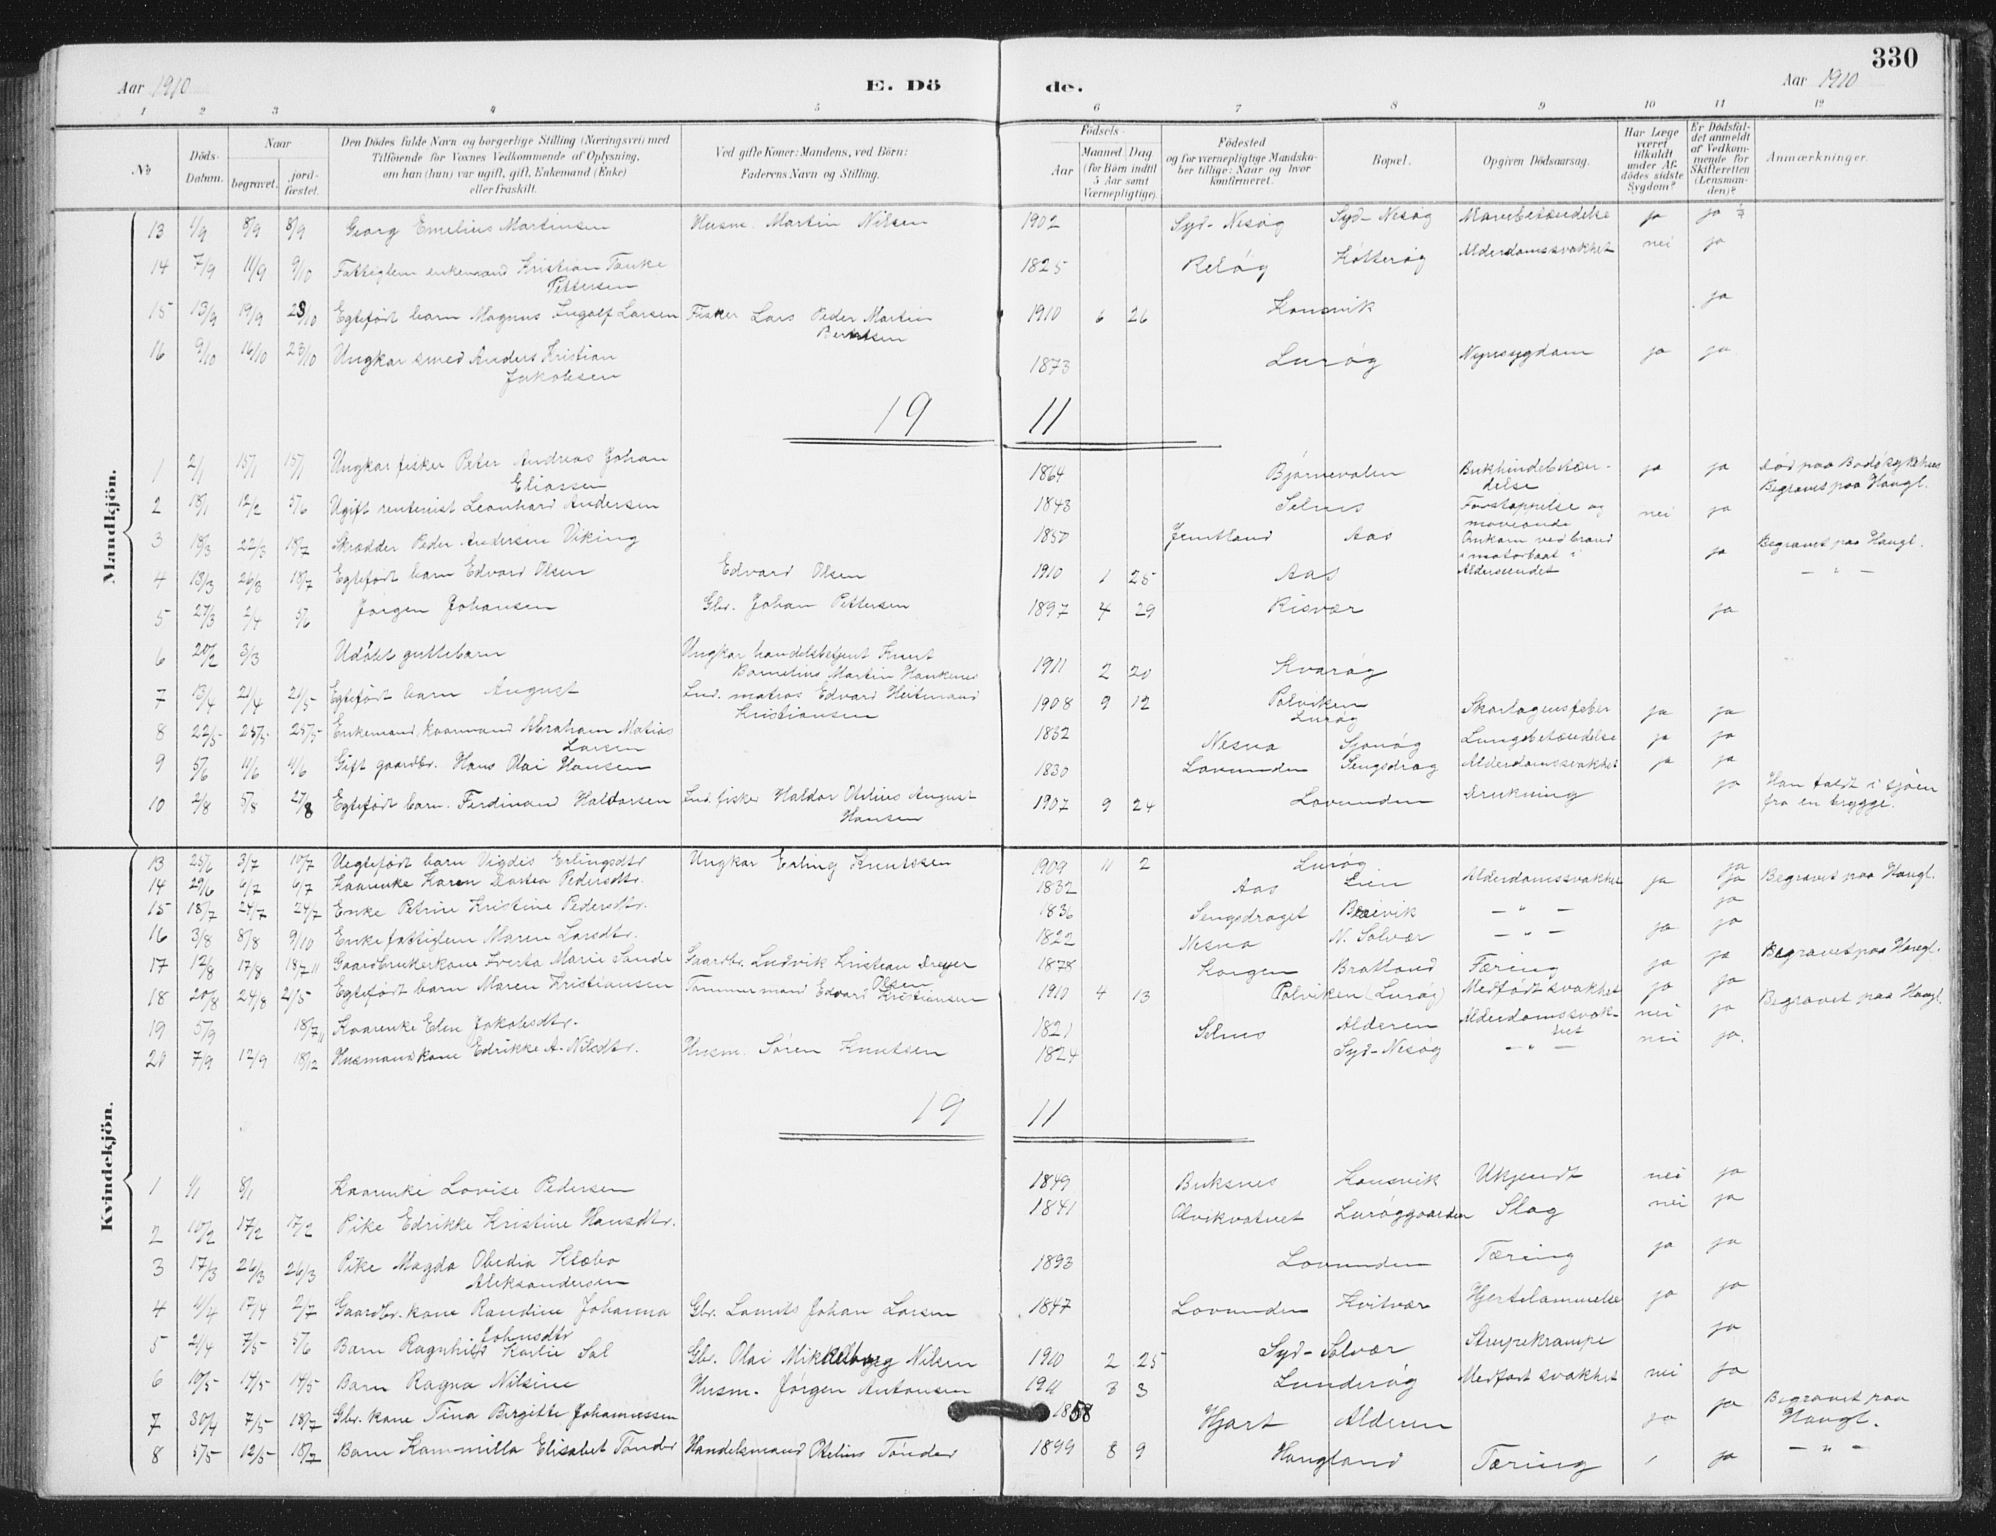 330
Aar 1910 E. Dö de. Aar 1910
1 2 3 4 5 6 7 8 9 10 11 12
No
Döds-Datum.
Naar begravet. jordfæstet.
Den Dödes fulde Navn og borgerlige Stilling (Næringsvei) med Tilföiende for Voxnes Vedkommende af Oplysning, om han (hun) var ugift, gift, Enkemand (Enke) eller fraskilt.
Ved gifte Koner: Mandens, ved Börn: Faderens Navn og Stilling.
Födsels- Aar Maaned Dag (for Börn indtil 5 Aar samt Værnepligtige).
Födested og for værnepligtige Mandskaber tillige: Naar og hvor konfirmeret.
Bopæl.
Opgiven Dödsaarsag.
Har Læge været tilkaldt under Afdödes sidste Sygdom?
Er Dödsfaldet anmeldt af Vedkommende for Skifteretten (Lensmanden)?
Anmærkninger.
Mandkjön.
13 1/9 8/9 8/9 Georg Emelius Martinsen Husm. Martin Nilsen 1902 Syd-Nesøg Syd-Nesøg Mavebetændelse ja ja
14 7/9 11/9 9/10 Fattiglem enkemand Kristian Tanke Pettersen 1825 Reløg Kotterøg Alderdomssvakhet nei ja
15 13/9 19/9 23/10 Egtefødt barn Magnus Ingolf Larsen Fisker Lars Peder Martin Berntsen 1910 6 26 Konsvik ja
16 9/10 16/10 23/10 Ungkar smed Anders Kristian Jakobsen 1873 Lurøg Nyresygdom ja ja
19 11
1 2/1 15/1 15/1 Ungkar fisker Peter Andreas Johan Eliassen 1864 Bjørnevalen Bukhindebetændelse ja ja Død paa Bodø sykehus Begravet paa Haugl.
2 18/1 12/2 5/6 Ugift rentenist Leonhard Andersen 1843 Selnes Forstoppelse og nei ja
3 18/3 22/3 18/7 Skrædder Peder Andersen Viking 1850 Jemtland Aas Omkom ved brand i motorbaat i Aldersundet ja Begravet paa Haugl.
4 18/3 26/3 18/7 Egtefødt barn Edvard Olsen Edvard Olsen 1910 1 25 Aas — " —
5 27/3 2/4 5/6 Jørgen Johansen Gbr. Johan Pettersen 1897 4 29 Risvær ja
6 20/2 3/3 Udøbt guttebarn Ungkar handelsbetjent Knut Bornelius Martin Haukenes 1911 2 20 Kvarøg
7 13/4 21/4 21/5 Egtefødt barn August Ind. matros Edvard Heitmand Kristiansen 1908 9 12 Polviken Lurøg Skarlagensfeber ja ja
8 22/5 25/5 25/5 Enkemand, kaarmand Abraham Matias Larsen 1832 Nesna Sjonøg Lungebetændelse ja ja
9 5/6 11/6 11/6 Gift gaardbr. Hans Olai Hansen 1830 Lovunden Sengsdrag Alderdomssvakhet ja ja
10 2/8 5/8 27/8 Egtefødt barn. Ferdinand Haldorsen Ind. fisker Haldor Otelius August Hansen 1907 9 24 Lovunden Drukning ja Han faldt i sjøen fra en brygge.
Kvindekjön.
13 25/6 3/7 10/7 Uegtefødt barn Vigdis Erlingsdtr. Ungkar Erling Knutssen 1909 11 2 Lurøg ja
14 29/6 6/7 6/7 Kaarenke Karen Dortea Pedersdtr. 1832 Aas Lien Alderdomssvakhet ja ja Begravet paa Haugl.
15 18/7 24/7 24/7 Enke Petrine Kristine Pedersdtr. 1836 Sengsdraget Breivik — " — ja
16 3/8 8/8 9/10 Enke fattiglem Maren Larsdtr. 1822 Nesna N. Solvær — " — ja ja
17 12/8 17/8 18/7 11 Gaardbrukerkone Iverta Marie Sande Gaardbr. Ludvik Kristian Dreyer Olsen 1878 Korgen Bratland Tæring ja ja Begravet paa Haugl.
18 20/8 24/8 21/5 Egtefødt barn Maren Kristiansen Tømmermand Edvard Kristiansen 1910 4 13 Polviken (Lurøg) Medfødt svakhet ja ja
19 5/9 18/7 11 Kaarenke Elen Jakobsdtr. 1821 Selnes Alderen Alderdomssvakhet nei ja Begravet paa Haugl.
20 7/9 12/9 18/12 Husmandskone Edrikke A. Nilsdtr. Husm. Søren Knutsen 1824 Syd-Nesøg — " — nei ja.
19 11
1 1/1 8/1 Kaarenke Lovise Pedersen 1849 Buksnes Konsvik Ukjendt nei ja
2 10/2 17/2 17/2 Pike Edrikke Kristine Hansdtr. 1841 Olvikvatnet Lurøggaarden Slag nei ja
3 17/3 26/3 26/3 Pike Magda Obedia Klæbo Aleksandersen 1893 Lovunden Tæring ja ja
4 4/4 17/4 2/7 Gaardbr. kone Randine Johanna Johnsdtr Gbr. Laurits Johan Larsen 1847 Lovunden Hvitvær Hjertelammelse ja ja
5 21/4 7/5 5/6 Barn Ragnhild Karlie Sol Gbr. Olai Mikkelborg Nilsen 1910 2 25 Syd-Solvær Strupekrampe ja
6 10/5 14/5 14/5 Barn Ragna Nilsine Husm. Jørgen Antonsen 1911 3 3 Lunderøg Medfødt svakhet nei ja
7 30/4 7/5 18/7 Gbr. kone Tina Birgitte Johannessen 1858 Hjart Alderen ja ja Begravet paa Haugl.
8 5/5 12/5 18/7 Barn Kammilla Elisabet Tønder Handelsmand Otelius Tønder 1899 8 9 Haugland Tæring ja — " —